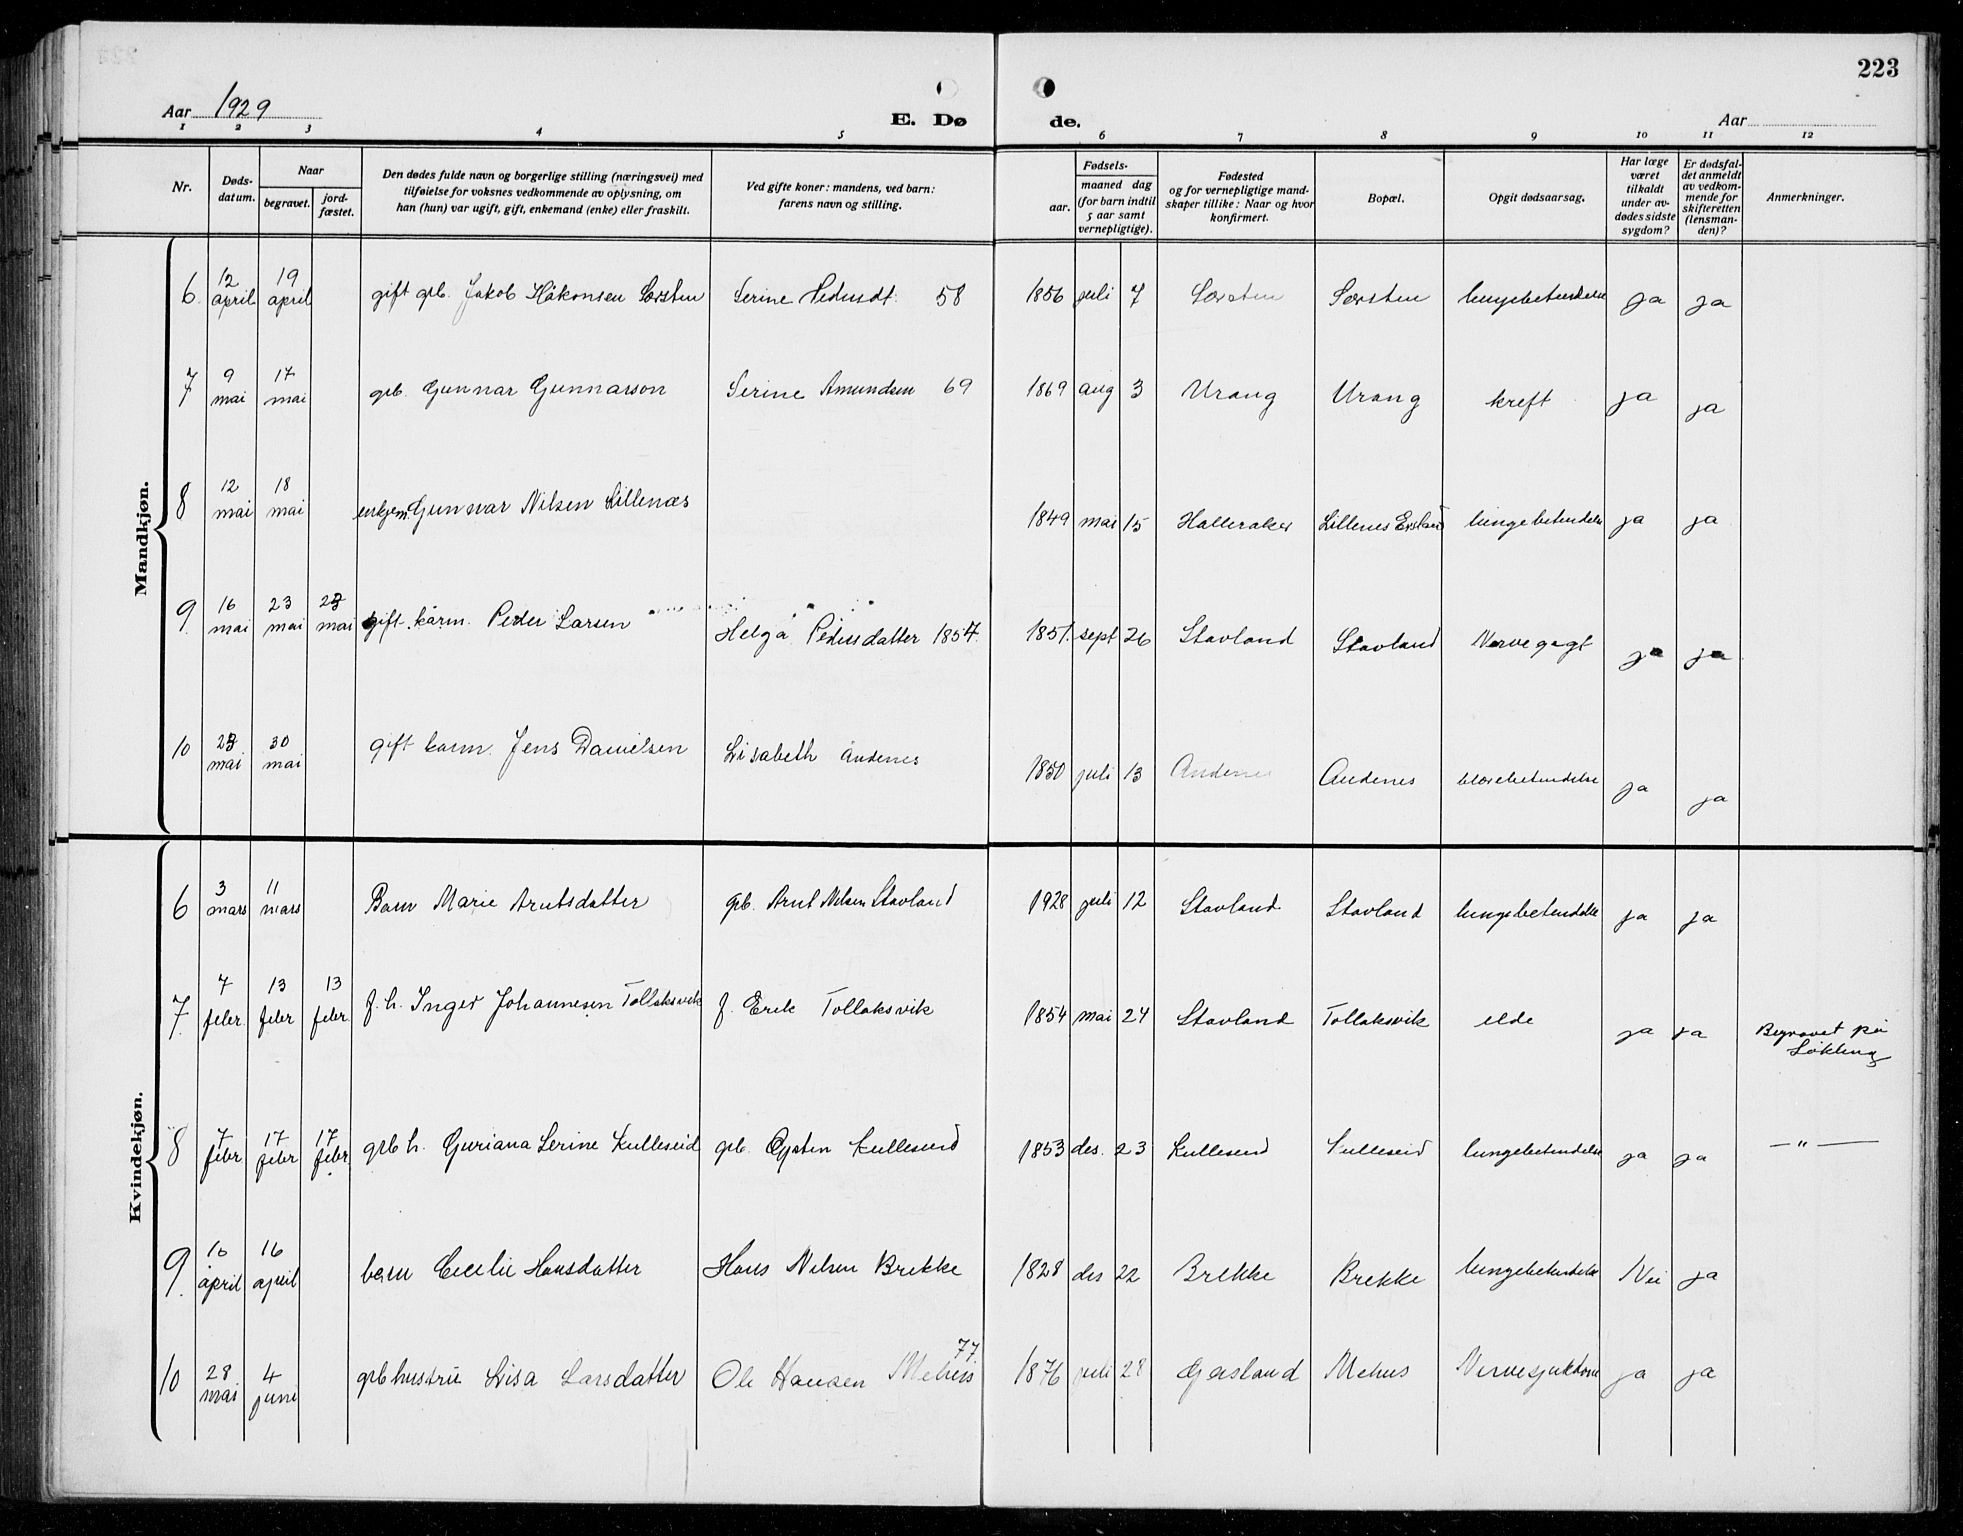 223
Aar 1929
E. Dø
de.
Aar
1 2 3 4 5 6 7 8 9 10 11 12
Nr.
Døds-
datum.
Naar
begravet.
jord-
fæstet.
Den dødes fulde navn og borgerlige stilling (næringsvei) med
tilføielse for voksnes vedkommende av oplysning, om
han (hun) var ugift, gift, enkemand (enke) eller fraskilt.
Ved gifte koner: mandens, ved barn:
farens navn og stilling.
Fødsels-
aar.
maaned dag
(for barn indtil
5 aar samt
vernepligtige).
Fødested
og for vernepligtige mand-
skaper tillike: Naar og hvor
konfirmert.
Bopæl.
Opgit dødsaarsag.
Har læge
været
tilkaldt
under av-
dødes sidste
sygdom?
Er dødsfal-
det anmeldt
av vedkom-
mende for
skifteretten
(lensman-
den)?
Anmerkninger.
Mandkjøn.
6 12 april 19 april gift grb. Jakob Håkonsen Sørsten Serine 58 1856 juli 7 Sørsten Sørsten lungebetendelse ja ja
7 9 mai 17 mai grb. Gunnar Gunnarson Serine Amundsen 69 1869 aug 3 Urang Urang kreft ja ja
8 12 mai 18 mai enkjem. Gunnar Nilsen Lillenæs 1849 mai 15 Halleraker Lillenes lungebetendelse ja ja
9. 16 mai 23 mai 23 mai gift kårm. Peder Larsen Helga Pedersdatter 1854. 1851. sept 26 Stavland Stavland Nervegigt ja ja
10 23 mai 30 mai gift karm. Jens Danielsen Lisabeth Andenes 1850 juli 13 Andenes Andenes blærebetendelse ja ja
Kvindekjøn.
6 3 mars 11 mars Barn Marie Arntsdatter grb. Arnt Nilsen Stavland 1928 juli 12 Stavland Stavland lungebetendelse ja ja
7. 7 febr. 13 febr 13 febr f. h. Inger Johannesen Tollaksvik f. Erik Tollaksvik 1854 mai 24 Stavland Tollaksvik elde ja ja Begravet på
Løkling
8 7 febr 17 febr 17 febr. grb h. Guriana Serine Kulleseid grb. Øysten Kulleseid 1853 des. 23 Kulleseid Kulleseid lungebetendelse ja ja — " —
9. 10 april 16 april barn Cecilie Hansdatter Hans Nilsen Brekke 1828 des 22 Brekke Brekke lungebetendelse Nei ja
10 28 mai 4 juni grb hustru Lisa Larsdatter Ole Hansen Mehus 77. 1876 juli 28 Gjersland Mehus Nervesjukdom ja ja